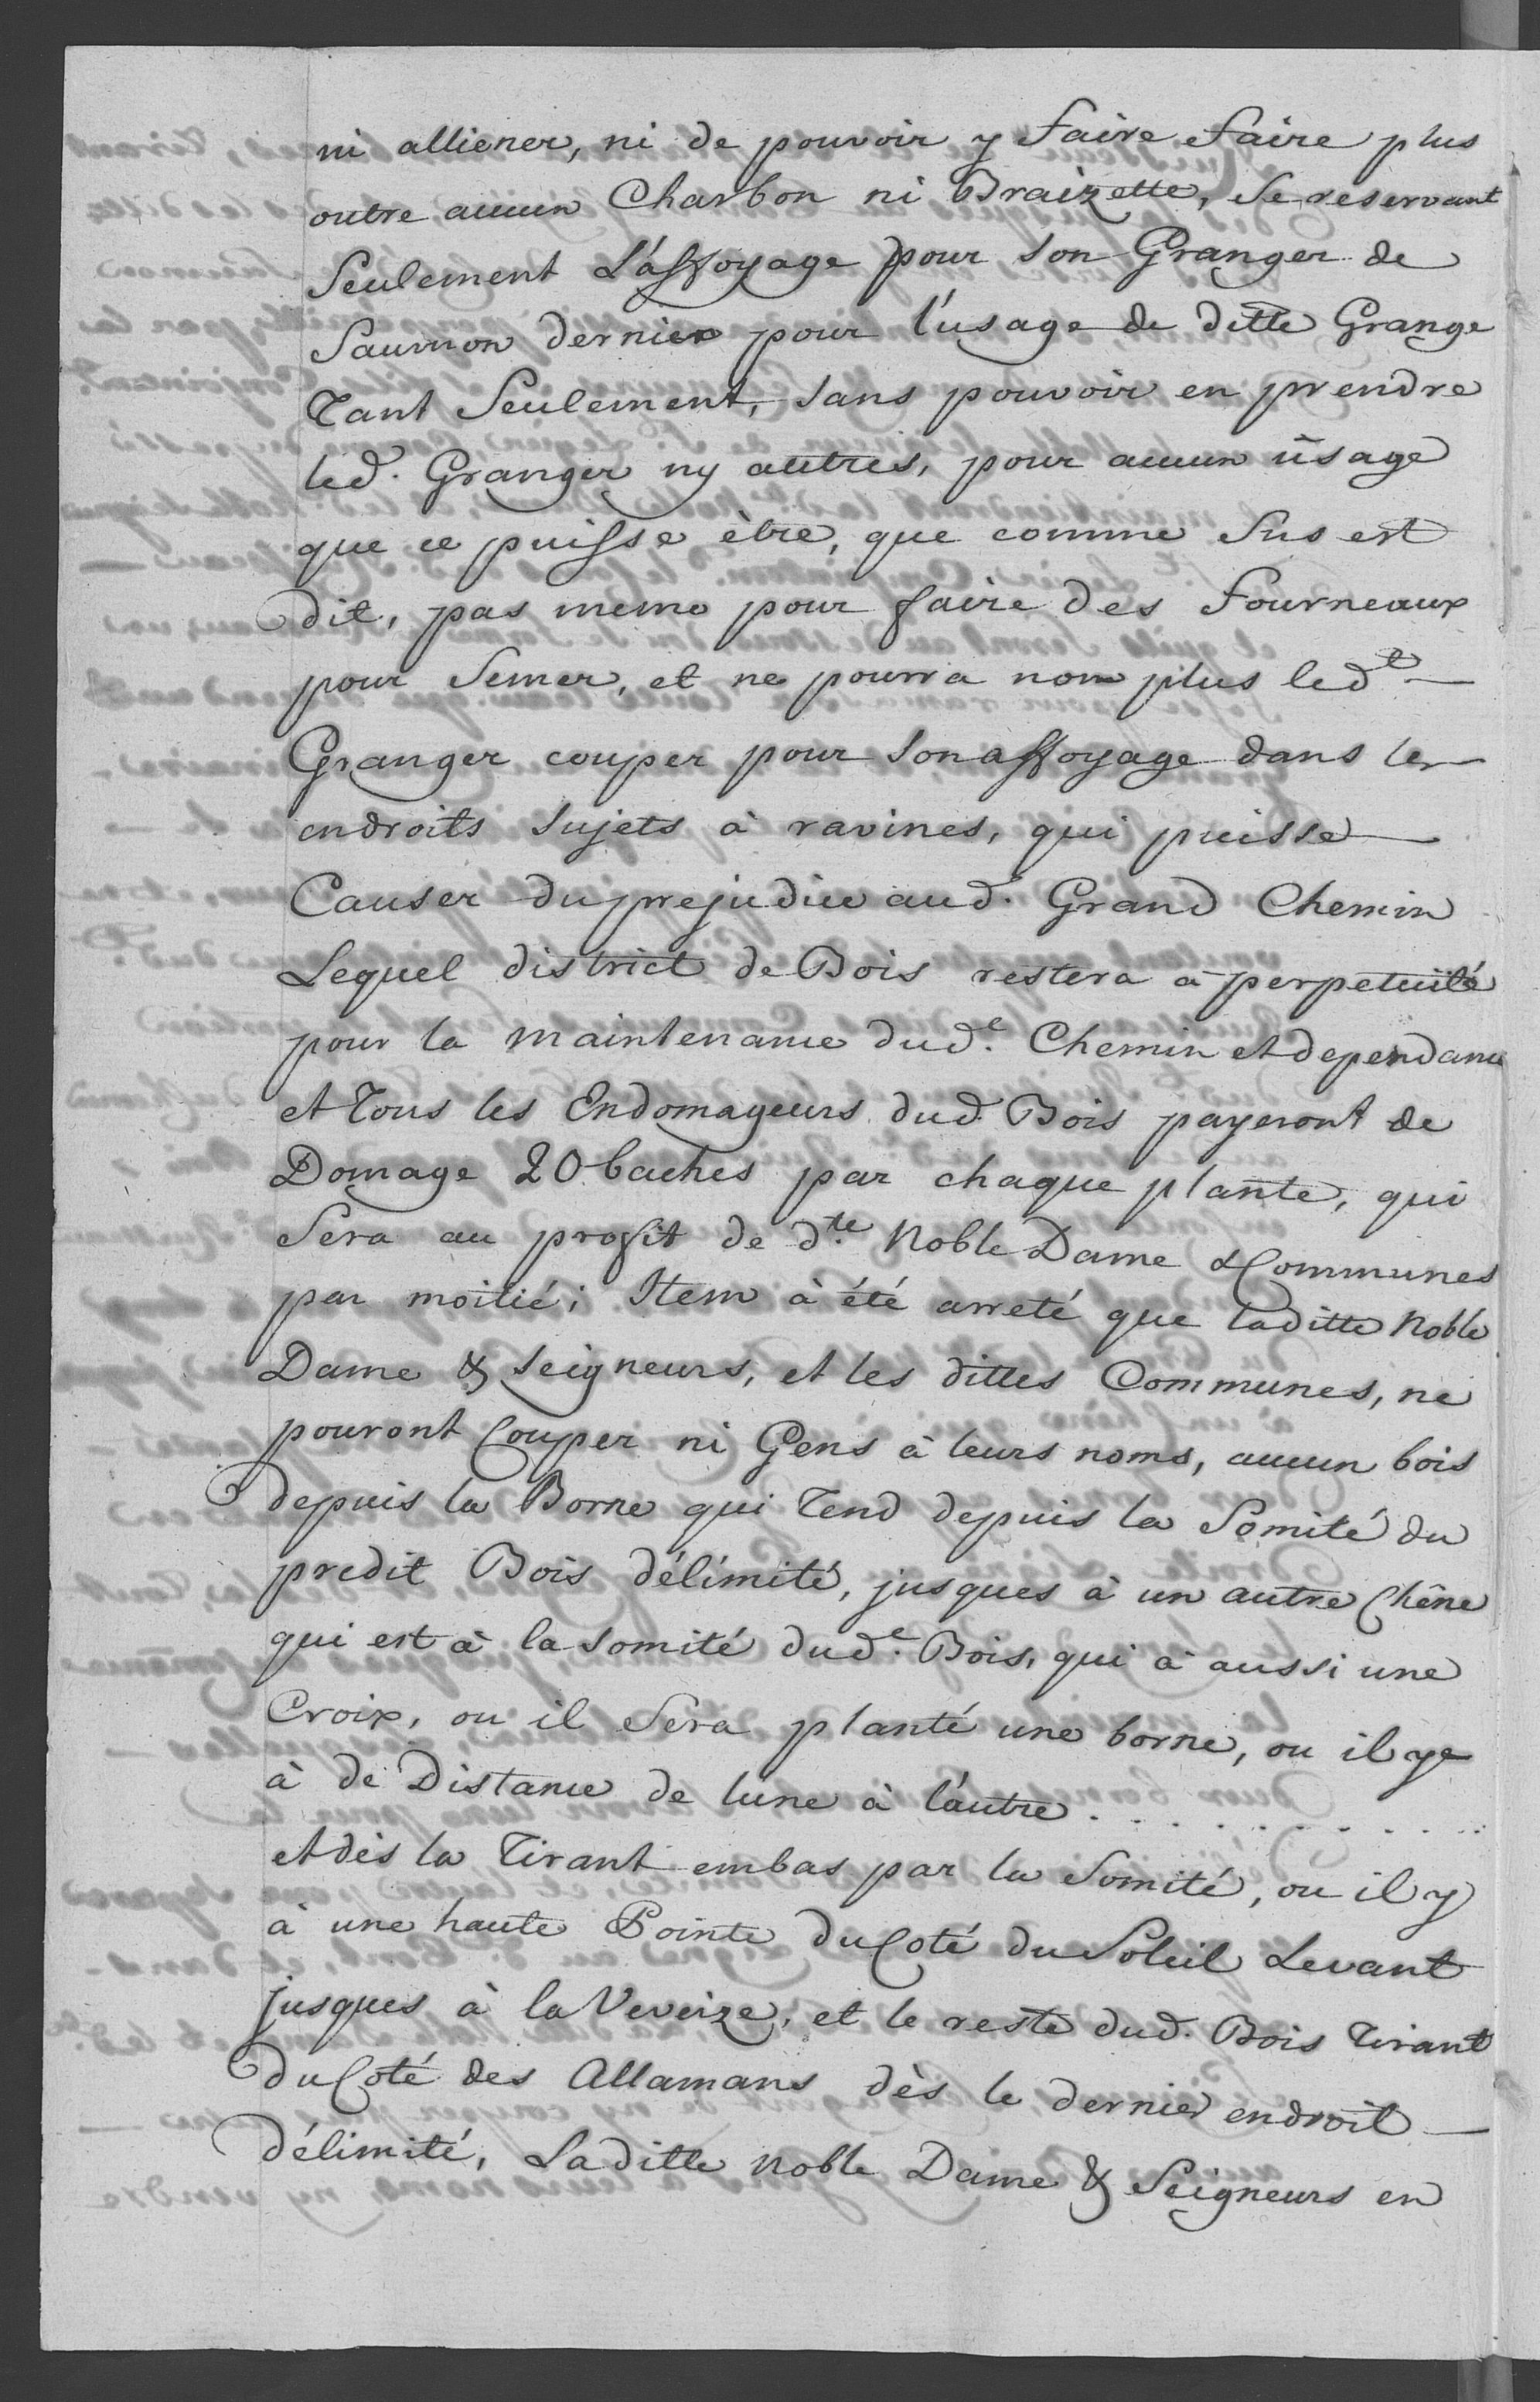 ni alliener, ni de pouvoir y faire faire plus
outre aucun Charbon ni Braizette, Se reservant
Seulement L'affoyage pour son Granger de
Saumon dernier pour l'usage de ditte Grange
Tant Seulement, sans pouvoir en prendre
led. Granger ny autres, pour aucun üsage
que ce puisse être, que comme Sus est
dit, pas meme pour faire des fourneaux
pour Semer, et ne pourra non plus ledt
Granger couper pour son affoyage dans les
endroits Sujets à ravines, qui puisse
Causer du prejudice aud. Grand Chemin
Lequel district de Bois restera à perpetuité
pour la maintenance dud.e Chemin et dependance
et Tous les Endomageurs dud. Bois payeront de
Domage 20 baches par chaque plante, qui
Sera au profit de d.te Noble Dame & Communes
par moitié; Item à été arreté que laditte Noble
Dame & Seigneurs, et les dittes Communes, ne
pouront Couper ni Gens à leurs noms, aucun bois
depuis la Borne qui Tend depuis la Somité du
predit Bois délimité, jusques à un autre Chêne
qui est à la Somité dud.e Bois, qui à aussi une
Croix, ou il Sera planté une borne, ou il y
à de Distance de lune à l'autre . . . . . . . . . . .
et dès la Tirant embas par la Somité, ou il y
à une haute Pointe du Coté du Soleil Levant
jusques à la Veveize, et le reste dud. Bois Tirant
du Coté des Allamans dès le dernier endroit
délimité, Laditte Noble Dame & Seigneurs en